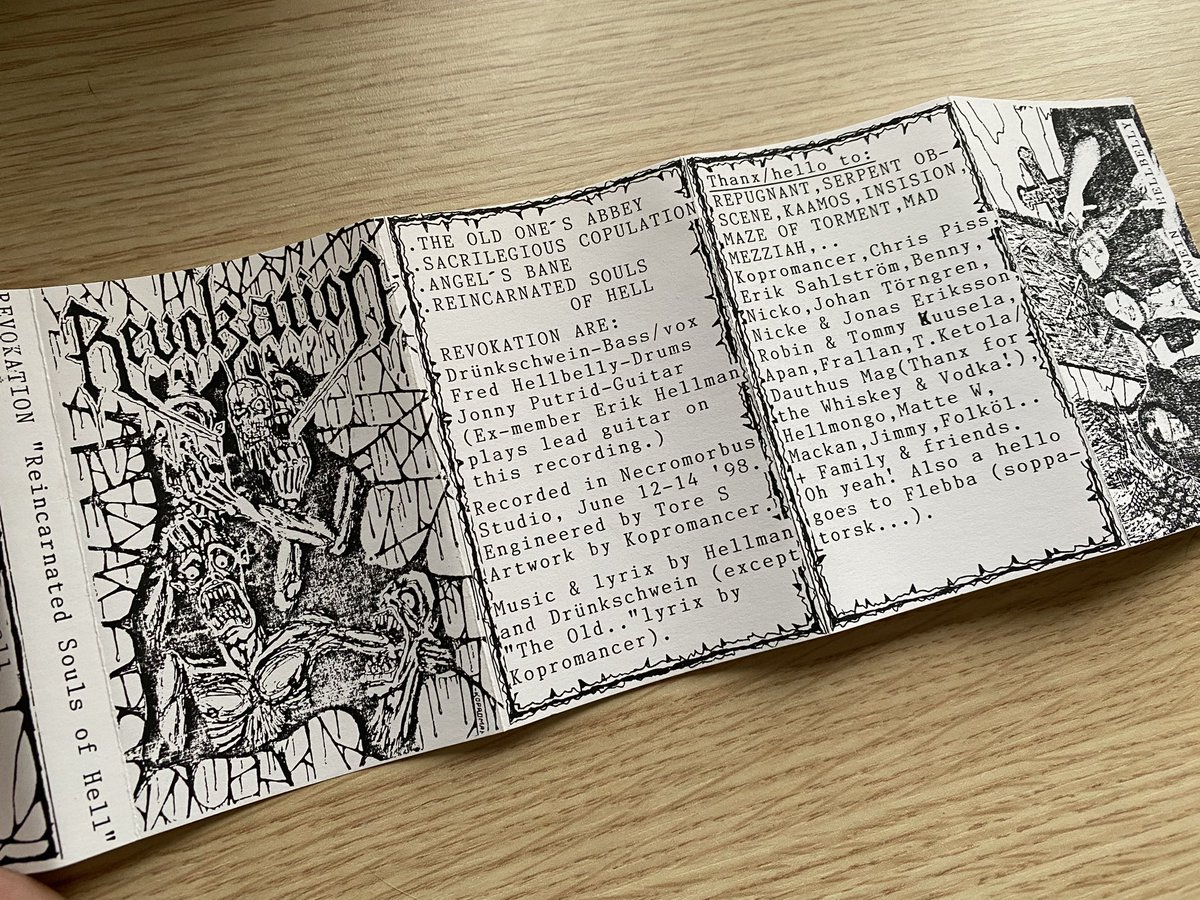 REVOKATION "Reincarnated Souls of Hell"
Revokation
.THE OLD ONE´S ABBEY
.SACRILEGIOUS COPULATION
.ANGEL´S BANE
REINCARNATED SOULS
OF HELL
REVOKATION ARE:
Drünkschwein-Bass/vox
Fred Hellbelly-Drums
Jonny Putrid-Guitar
(Ex-member Erik Hellman
plays lead guitar on
this recording.)
Recorded in Necromorbus
Studio, June 12-14 '98.
Engineered by Tore S
Artwork by Kopromancer.
Music & lyrix by Hellman
and Drünkschwein (except
"The Old.."lyrix by
Kopromancer).
Thanx/hello to:
REPUGNANT,SERPENT OB-
SCENE,KAAMOS,INSISION,
MAZE OF TORMENT,MAD
MEZZIAH,..
Kopromancer,Chris Piss,
Erik Sahlström,Benny,
Nicko,Johan Törngren,
Nicke & Jonas Eriksson,
Robin & Tommy Kuusela,
Apan,Frallan,T.Ketola/
Dauthus Mag(Thanx for
the Whiskey & Vodka!),
Hellmongo,Matte W,
Mackan,Jimmy,Folköl..
+ Family & friends.
Oh yeah! Also a hello
goes to Flebba (soppa-
torsk...).
HELLBELLY